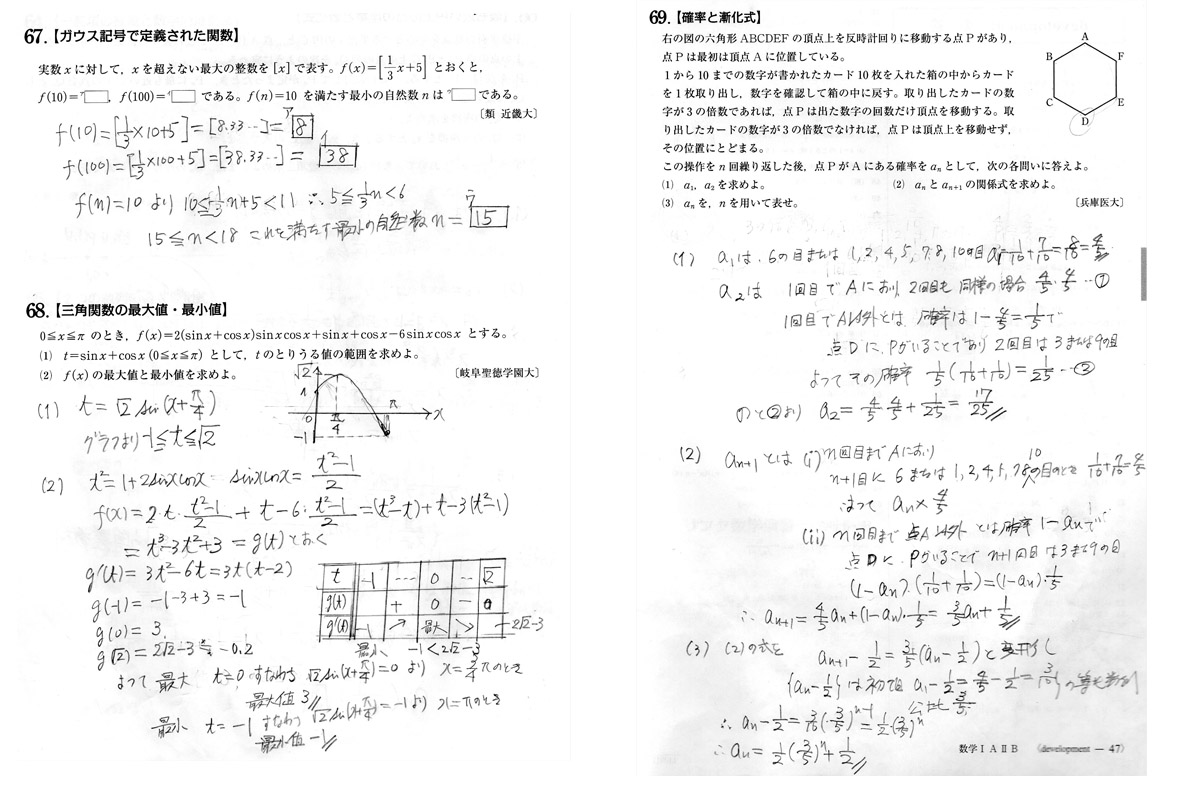 67.【ガウス記号で定義された関数】
実数 x に対して，x を超えない最大の整数を [x] で表す。f(x)=[1/3 x+5] とおくと，
f(10)=ア□，f(100)=イ□ である。f(n)=10 を満たす最小の自然数 n は ウ□ である。
〔類 近畿大〕
f(10)=[1/3×10+5]=[8.33…]= ア 8
f(100)=[1/3×100+5]=[38.33…]= イ 38
f(n)=10 より 10≦1/3n+5<11 ∴5≦1/3n<6
15≦n<18 これを満たす最小の自然数 n= ウ 15
68.【三角関数の最大値・最小値】
0≦x≦π のとき，f(x)=2(sinx+cosx)sinxcosx+sinx+cosx−6sinxcosx とする。
(1) t=sinx+cosx (0≦x≦π) として，t のとりうる値の範囲を求めよ。
(2) f(x) の最大値と最小値を求めよ。 〔岐阜聖徳学園大〕
(1) t=√2 sin(x+π/4)
グラフより −1≦t≦√2
√2
1
0
π/4
π
x
−1
(2) t²=1+2sinxcosx sinxcosx=(t²−1)/2
f(x)=2·t·(t²−1)/2+t−6·(t²−1)/2=(t³−t)+t−3(t²−1)
=t³−3t²+3=g(t)とおく
g'(t)=3t²−6t=3t(t−2)
g(−1)=−1−3+3=−1
g(0)=3
g(√2)=2√2−3≒−0.2
t −1 … 0 … √2
g(t) + 0 − 0
g'(t) −1 ↗ 最大 ↘ −2√2−3
最小 −1<2√2−3
よって 最大 t=0 すなわち √2sin(x+π/4)=0 より x=3/4πのとき
最大値 3
最小 t=−1 すなわち √2sin(x+π/4)=−1より x=πのとき
最小値−1
69.【確率と漸化式】
右の図の六角形 ABCDEF の頂点上を反時計回りに移動する点 P があり，
点 P は最初は頂点 A に位置している。
1 から 10 までの数字が書かれたカード 10 枚を入れた箱の中からカード
を 1 枚取り出し，数字を確認して箱の中に戻す。取り出したカードの数
字が 3 の倍数であれば，点 P は出た数字の回数だけ頂点を移動する。取
り出したカードの数字が 3 の倍数でなければ，点 P は頂点上を移動せず，
その位置にとどまる。
この操作を n 回繰り返した後，点 P が A にある確率を aₙ として，次の各問いに答えよ。
(1) a₁，a₂ を求めよ。 (2) aₙ と aₙ₊₁ の関係式を求めよ。
(3) aₙ を，n を用いて表せ。 〔兵庫医大〕
A
B
F
C
E
D
(1) a₁は，6の目または 1,2,4,5,7,8,10の目 a₁=1/10+7/10=8/10=4/5
a₂は 1回目でAにあり 2回目も同様の場合 4/5·4/5 …①
1回目でA以外とは，確率は 1−4/5=1/5で
点DにPがいることであり 2回目は3または9の目
よって その確率 1/5(1/10+1/10)=1/25…②
①と②より a₂=4/5 4/5+1/25=17/25
(2) aₙ₊₁とは (i) n回目までAにあり
n+1回目に 6または 1,2,4,5,7,8,10の目のとき 1/10+7/10=4/5
よって aₙ×4/5
(ii) n回目まで点A以外とは確率 1−aₙで
点Dに Pがいることで n+1回目は3または9の目
(1−aₙ)·(1/10+1/10)=(1−aₙ)·1/5
∴aₙ₊₁=4/5aₙ+(1−aₙ)·1/5=3/5aₙ+1/5
(3) (2)の式を aₙ₊₁−1/2=3/5(aₙ−1/2)と変形し
{aₙ−1/2}は初項 a₁−1/2=4/5−1/2=3/10の等比数列
公比 3/5
∴aₙ−1/2=3/10(3/5)ⁿ⁻¹=1/2(3/5)ⁿ
∴aₙ=1/2(3/5)ⁿ+1/2
数学ⅠAⅡB 《development − 47》